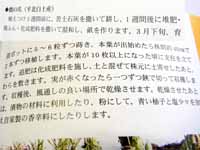 ●鷹の爪（平麦白土産）
植えつけ2週間前に、苦土石灰を撒いて耕し、1週間後に堆肥・
鶏ふん・化成肥料を撒いて混和し、畝を作ります。3月下旬、育
苗ポットに5～6粒ずつ蒔き、本葉が出始めたら株間約
1本ずつ移植します。本葉が10枚以上になった頃に支柱を立て
ます。追肥は化成肥料を施し、土と混ぜて株元に土寄せしたあと
わらを敷きます。実が赤くなったら一つずつ鋏で切って収穫しま
す。収穫後、風通しの良い場所で乾燥させます。乾燥させたもの
は、漬物の材料に利用したり、粉にして、青い柚子と塩少々を
自家製の香辛料にしたりします。